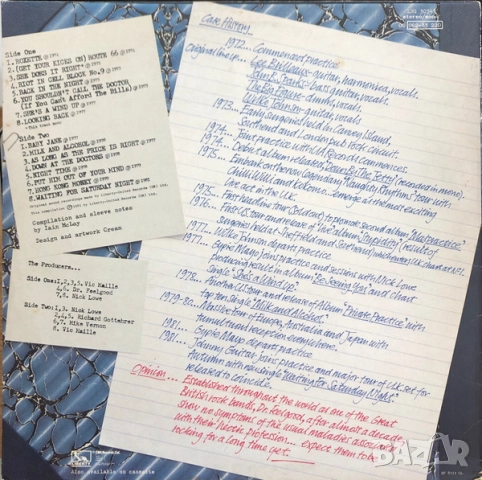 Side One
1. ROXETTE ℗ 1974
2. (GET YOUR KICKS ON) ROUTE 66
3. SHE DOES IT RIGHT
4. RIOT IN CELL BLOCK No.9
5. BACK IN THE NIGHT
6. YOU SHOULDN'T CALL THE DOCTOR
(If You Cant Afford The Bills)
7. SHE'S A WIND UP
8. LOOKING BACK
Side Two
1. BABY JANE
2. MILK AND ALCOHOL
3. AS LONG AS THE PRICE IS RIGHT
4. DOWN AT THE DOCTORS
5. NIGHT TIME
6. PUT HIM OUT OF YOUR MIND
7. HONG KONG MONEY
8. WAITING FOR SATURDAY NIGHT
Compilation and sleeve notes
by Iain McLay
Design and artwork Cream
The Producers...
Side One: 1, 2, 3, 5. Vic Maille
4, 6. Dr. Feelgood
7, 8. Nick Lowe
Side Two: 1, 3. Nick Lowe
2, 4, 5. Richard Gottehrer
6, 7. Mike Vernon
8. Vic Maille
Also available on cassette
stereo/mono
Case History
1972... Commenced practice.
Original line up... Lee Brilleaux - guitar, harmonica, vocals.
John B. Sparks - bass guitar, vocals.
The Big Figure - drums, vocals.
Wilko Johnson - guitar, vocals.
1973... Early surgeries held in Canvey Island,
Southend and London pub rock circuit.
1974... Joint practice with U.A. Records commences.
Debut album released "Down By The Jetty" (recorded in mono)
1975... Embark on the now legendary Naughty Rhythms tour with
Chilli Willi and Kokomo... emerge as the most exciting
live act in the UK.
1975... First headline tour (Sold out) to promote second album "Malpractice"
1976... First U.S. tour and release of live album "Stupidity" (result of
1977... Wilko Johnson departs practice
1977... Gypie Mayo joins practice and sessions with Nick Lowe
producing result in album "Be Seeing You" and chart
single "She's a Wind Up"
1978... Another U.S. tour and release of Album "Private Practice" with
top ten Single "Milk and Alcohol"
1979-80... Massive tour of Europe, Australia and Japan with
tumultuous reception everywhere.
1981... Gypie Mayo departs practice
1981... Johnny Guitar joins practice and major tour of U.K. set for
Autumn with new single "Waiting for Saturday Night"
released to coincide.
Opinion... Established throughout the world as one of the Great
British rock bands, Dr. Feelgood, after almost a decade,
show no symptoms of the usual maladies associated
with their hectic profession... expect them to be
rocking for a long time yet.
БАЗАР